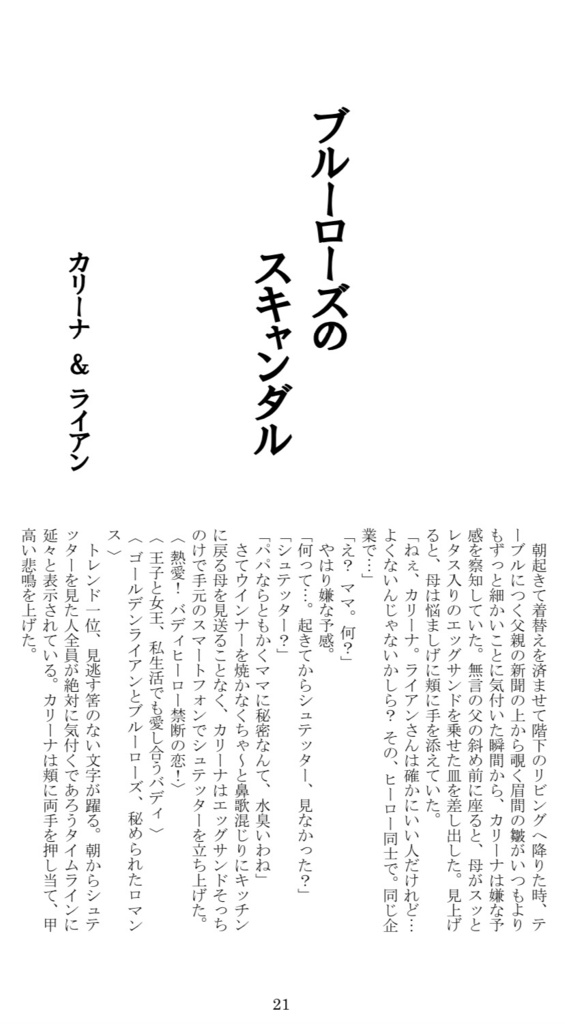 ブルーローズの
スキャンダル
カリーナ & ライアン
　朝起きて着替えを済ませて階下のリビングへ降りた時、テ
ーブルにつく父親の新聞の上から覗く眉間の皺がいつもより
もずっと細かいことに気付いた瞬間から、カリーナは嫌な予
感を察知していた。無言の父の斜め前に座ると、母がスッと
レタス入りのエッグサンドを乗せた皿を差し出した。見上げ
ると、母は悩ましげに頬に手を添えていた。
「ねぇ、カリーナ。ライアンさんは確かにいい人だけれど…
よくないんじゃないかしら？ その、ヒーロー同士で。同じ企
業で…」
「え？ ママ。何？」
　やはり嫌な予感。
「何って…。起きてからシュテッター、見なかった？」
「シュテッター？」
「パパならともかくママに秘密なんて、水臭いわね」
　さてウインナーを焼かなくちゃ～と鼻歌混じりにキッチン
に戻る母を見送ることなく、カリーナはエッグサンドそっち
のけで手元のスマートフォンでシュテッターを立ち上げた。
〈 熱愛！ バディヒーロー禁断の恋！〉
〈 王子と女王、私生活でも愛し合うバディ 〉
〈 ゴールデンライアンとブルーローズ、秘められたロマン
ス 〉
　トレンド一位、見逃す筈のない文字が躍る。朝からシュテ
ッターを見た人全員が絶対に気付くであろうタイムラインに
延々と表示されている。カリーナは頬に両手を押し当て、甲
高い悲鳴を上げた。
21